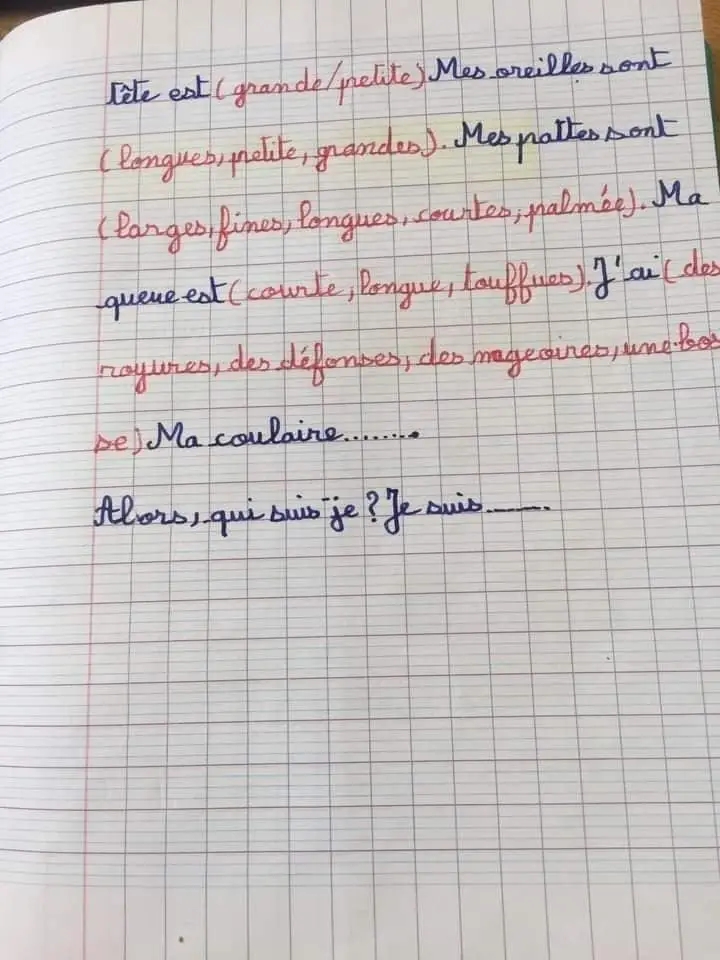 tête est (grande/petite) Mes oreilles sont
(longues, petite, grandes). Mes pattes sont
(larges, fines, longues, courtes, palmée). Ma
queue est (courte, longue, touffues). J'ai (des
rayures, des défenses, des nageoires, une bos
se) Ma coulaire........
Alors, qui suis-je? Je suis........